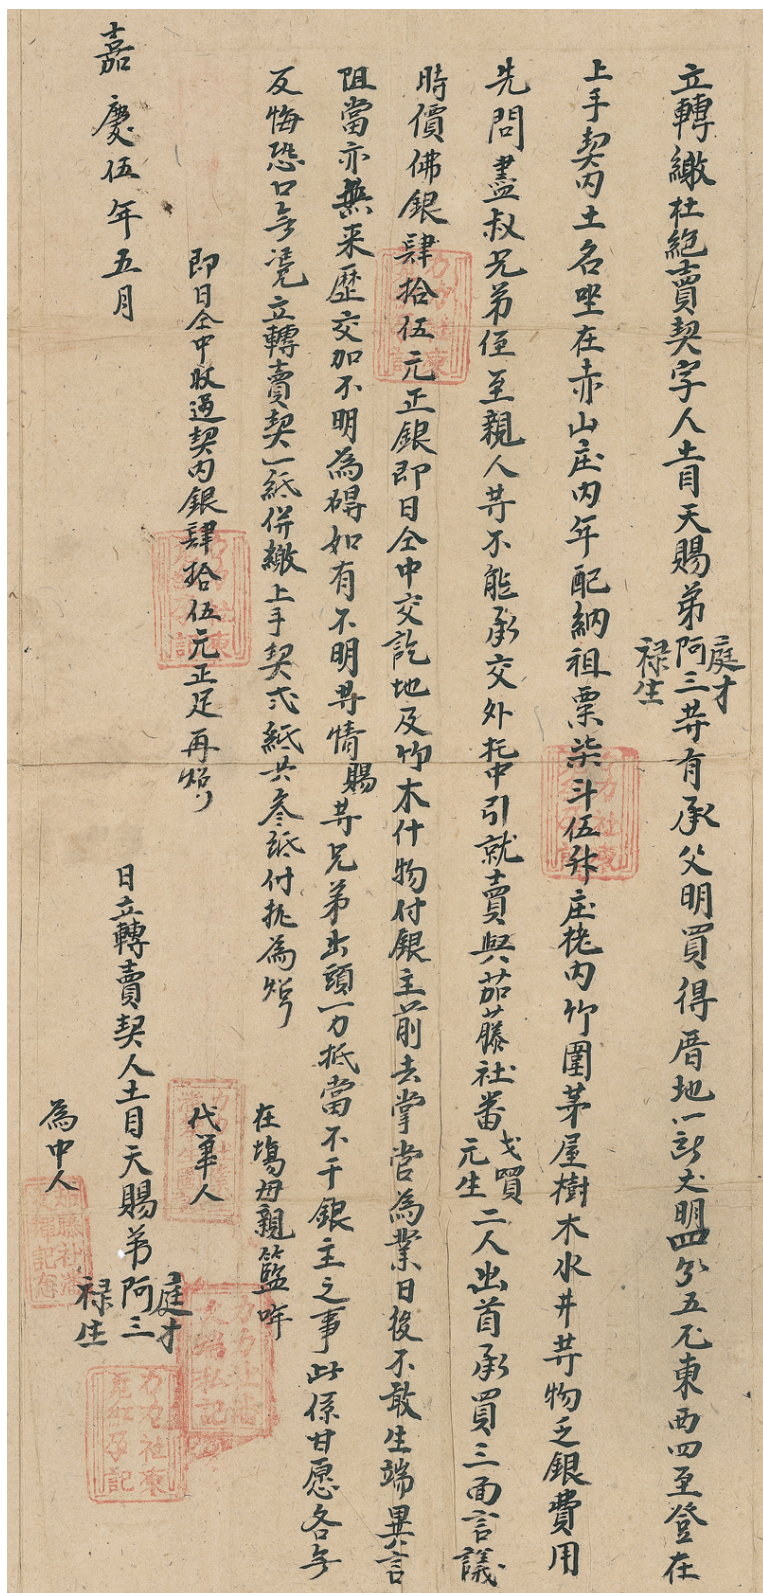 立轉繳杜絕賣契字人土目天賜弟庭才阿三祿生等有承父明買得厝地一所丈明四分五厘東西四至登在
上手契內土名坐在赤山庄內年配納祖粟柒斗伍升庄栳內竹圍茅屋樹木水井等物乏銀費用
先問盡叔兄弟侄至親人等不能承交外托中引就賣與茄藤社番戈買元生二人出首承買三面言議
時價佛銀肆拾伍元正銀即日仝中交訖地及竹木什物付銀主前去掌管為業日後不敢生端異言
阻當亦無来歷交加不明為碍如有不明等情賜等兄弟出頭一力抵當不干銀主之事此係甘愿各無
反悔恐口無凭立轉賣契一紙併繳上手契弍紙共叁紙付执為炤
即日仝中收過契內銀肆拾伍元正足再炤
在塲母親籃哖
代筆人
嘉慶伍年五月
日立轉賣契人土目天賜弟庭才阿三祿生
為中人